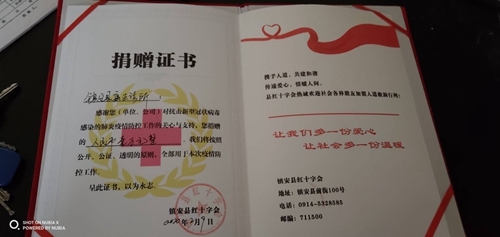 捐赠证书
感谢您（单位、公司）对抗击新型冠状病毒
感染的肺炎疫情防控工作的关心与支持，您捐赠
的
，我们将按照
公开、公证、透明的原则，全部用于本次疫情防
控工作。
呈此证书，以为永志。
镇安县红十字会
携手人道，共建和谐
传递爱心，情暖人间。
县红十字会热诚欢迎社会各界朋友加盟人道救助行列！
让我们多一份爱心
让社会多一份温暖
镇安县红十字会
地址：镇安县前街100号
电话：0914-5328585
邮编：711500
SHOT ON NUBIA X
POWERED BY NUBIA